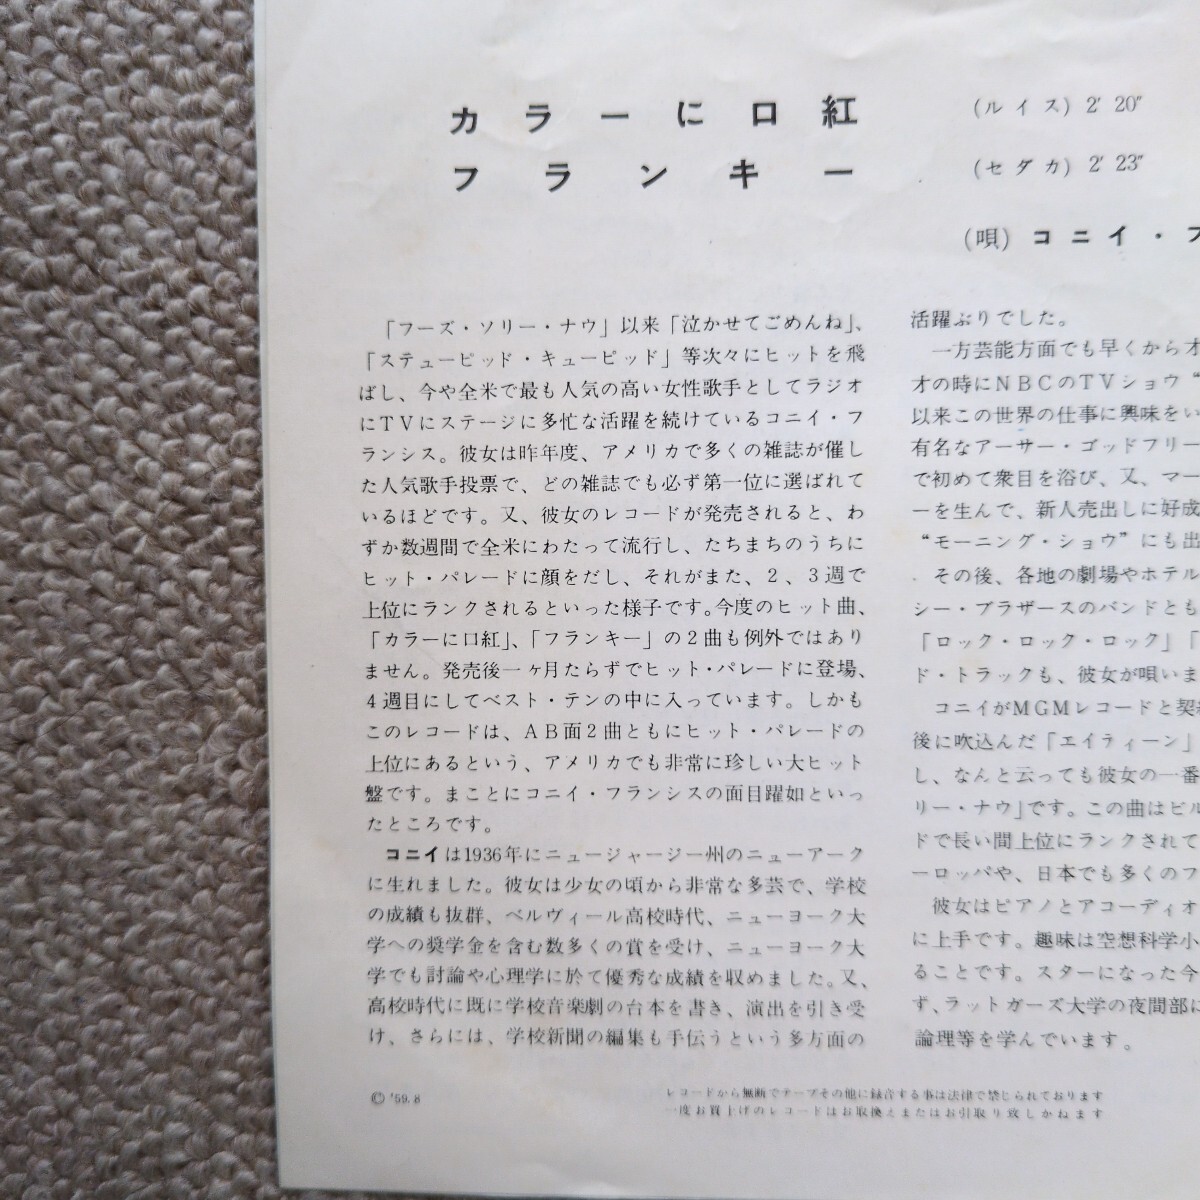 カラーに口紅 (ルイス) 2′20″
フランキー (セダカ) 2′23″
(唄) コニイ・フ
「フーズ・ソリー・ナウ」以来「泣かせてごめんね」、
「ステューピッド・キューピッド」等次々にヒットを飛
ばし、今や全米で最も人気の高い女性歌手としてラジオ
にTVにステージに多忙な活躍を続けているコニイ・フ
ランシス。彼女は昨年度、アメリカで多くの雑誌が催し
た人気歌手投票で、どの雑誌でも必ず第一位に選ばれて
いるほどです。又、彼女のレコードが発売されると、わ
ずか数週間で全米にわたって流行し、たちまちのうちに
ヒット・パレードに顔をだし、それがまた、2、3週で
上位にランクされるといった様子です。今度のヒット曲、
「カラーに口紅」、「フランキー」の2曲も例外ではあり
ません。発売後一ヶ月たらずでヒット・パレードに登場、
4週目にしてベスト・テンの中に入っています。しかも
このレコードは、AB面2曲ともにヒット・パレードの
上位にあるという、アメリカでも非常に珍しい大ヒット
盤です。まことにコニイ・フランシスの面目躍如といっ
たところです。
コニイは1936年にニュージャージー州のニューアーク
に生れました。彼女は少女の頃から非常な多芸で、学校
の成績も抜群、ベルヴィール高校時代、ニューヨーク大
学への奨学金を含む数多くの賞を受け、ニューヨーク大
学でも討論や心理学に於て優秀な成績を収めました。又、
高校時代に既に学校音楽劇の台本を書き、演出を引き受
け、さらには、学校新聞の編集も手伝うという多方面の
活躍ぶりでした。
一方芸能方面でも早くからオ
才の時にNBCのTVショウ“
以来この世界の仕事に興味をい
有名なアーサー・ゴッドフリー
で初めて衆目を浴び、又、マー
ーを生んで、新人売出しに好成
“モーニング・ショウ”にも出
その後、各地の劇場やホテル
シー・ブラザースのバンドとも
「ロック・ロック・ロック」「
ド・トラックも、彼女が唄いま
コニイがMGMレコードと契
後に吹込んだ「エイティーン」
し、なんと云っても彼女の一番
リー・ナウ」です。この曲はビル
ドで長い間上位にランクされて
ーロッパや、日本でも多くのフ
彼女はピアノとアコーディオ
に上手です。趣味は空想科学小
ることです。スターになった今
ず、ラットガーズ大学の夜間部に
論理等を学んでいます。
© '59.8
レコードから無断でテープその他に録音する事は法律で禁じられております
一度お買上げのレコードはお取換えまたはお引取り致しかねます